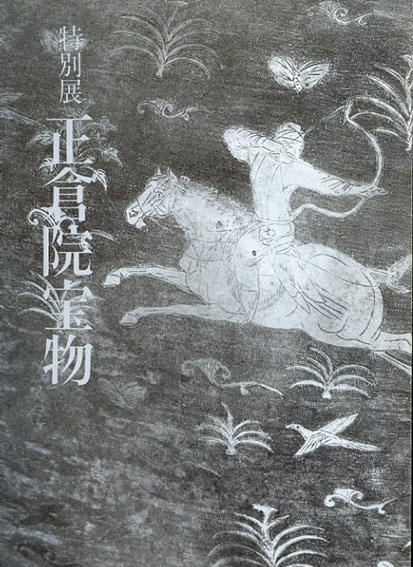 特別展
正倉院宝物